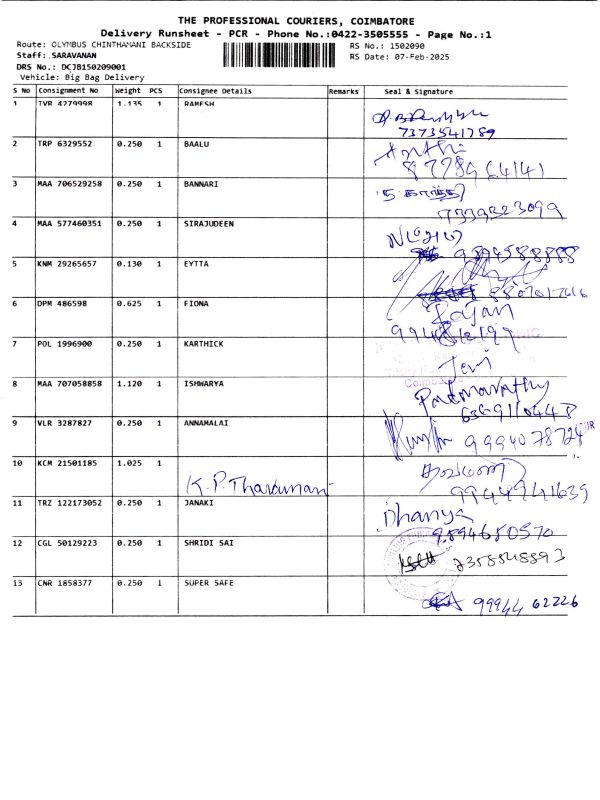 THE PROFESSIONAL COURIERS, COIMBATORE
Delivery Runsheet - PCR - Phone No.:0422-3505555 - Page No.:1
Route: OLYMBUS CHINTHAMANI BACKSIDE RS No.: 1502090
Staff: SARAVANAN RS Date: 07-Feb-2025
DRS No.: DCJB150209001
Vehicle: Big Bag Delivery
S No Consignment No Weight PCS Consignee Details Remarks Seal & Signature
1 TVR 4279998 1.135 1 RAMESH
7373541789
2 TRP 6329552 0.250 1 BAALU
3 MAA 706529258 0.250 1 BANNARI
7339323099
4 MAA 577460351 0.250 1 SIRAJUDEEN
9894588888
5 KNM 29265657 0.130 1 EYTTA
6 DPM 486598 0.625 1 FIONA Rajan
7 POL 1996900 0.250 1 KARTHICK
Jevi
8 MAA 707058858 1.120 1 ISHWARYA Padmavathy
6369110448
9 VLR 3287827 0.250 1 ANNAMALAI
9994078724
10 KCM 21501185 1.025 1
K.P Tharunan 9944941639
11 TRZ 122173052 0.250 1 JANAKI Dhanya
9894680570
12 CGL 50129223 0.250 1 SHRIDI SAI
13 CNR 1858377 0.250 1 SUPER SAFE
99944 62226